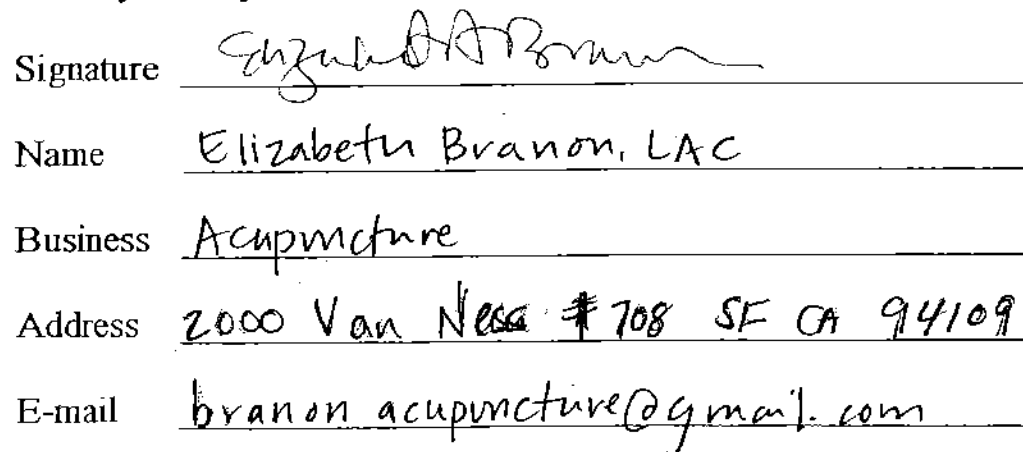 Signature Elizabeth A Branon
Name Elizabeth Branon, LAC
Business Acupuncture
Address 2000 Van Ness #708 SF CA 94109
E-mail branonacupuncture@gmail.com